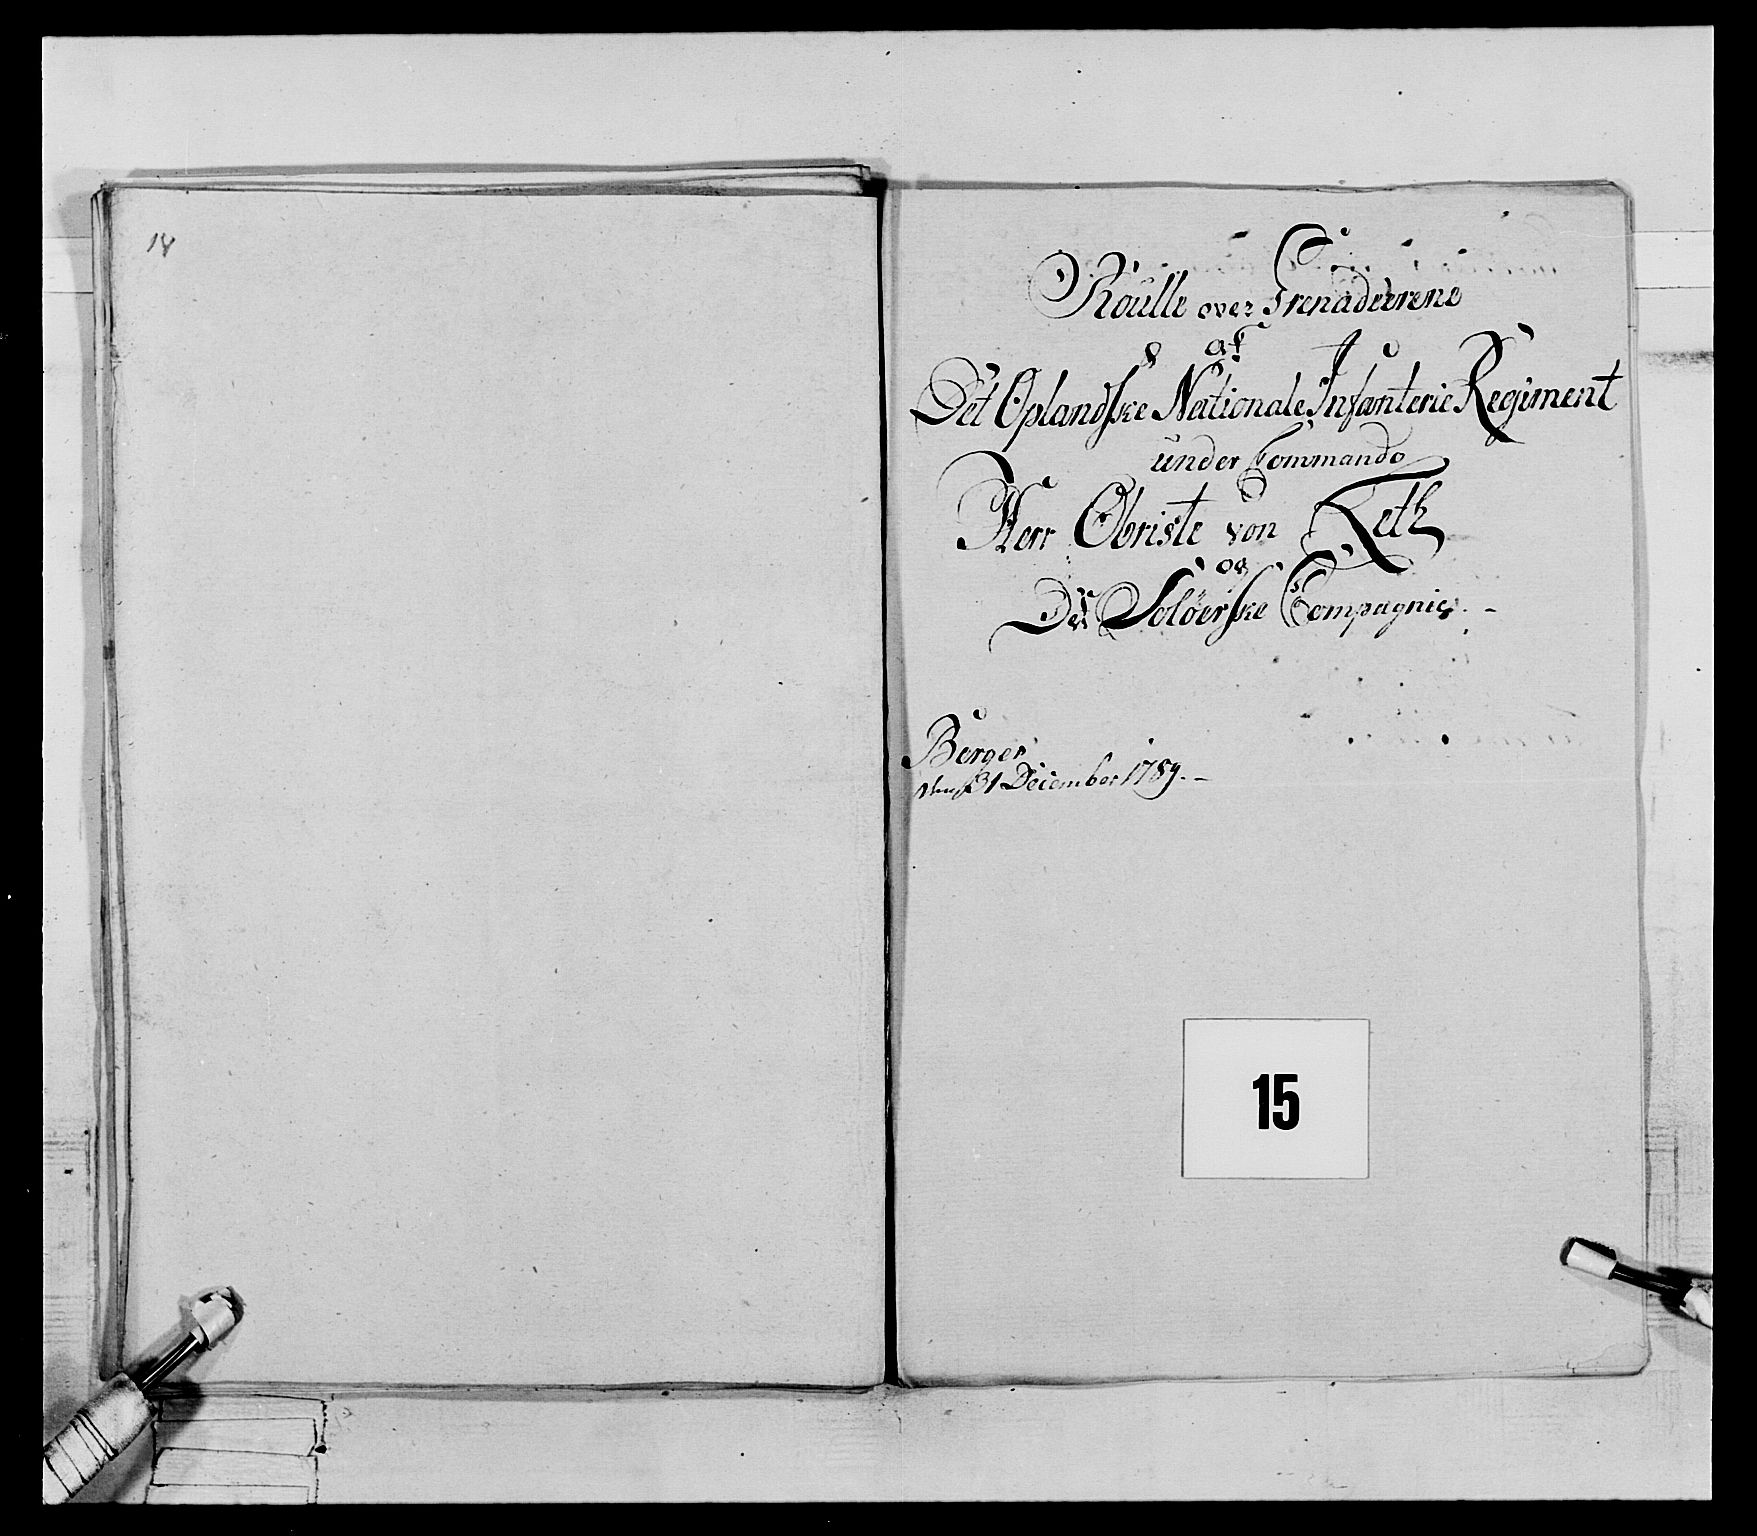 18
Roulle over Grenadeerene
af
Det Oplandske Nationale Infanterie Regiment
under Commando
Herr Obriste von Zetz
og
Det Solöerske Compagnie. -
Berger
31 December 1789. -
15